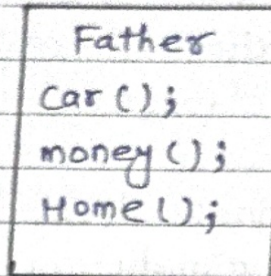 Father
Car();
money();
Home();